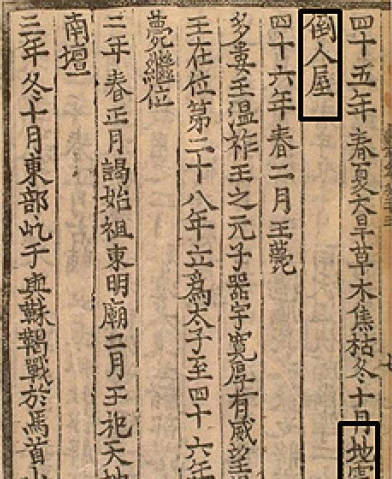 四十五年春夏大旱草木焦枯冬十月地震
倒人屋
四十六年春二月王薨
多婁王温祚王之元子器宇寬厚有威望
王在位第二十八年立爲太子至四十六年
薨繼位
二年春正月謁始祖東明廟二月王祀天地
南壇
三年冬十月東部屹于與靺鞨戰於馬首山